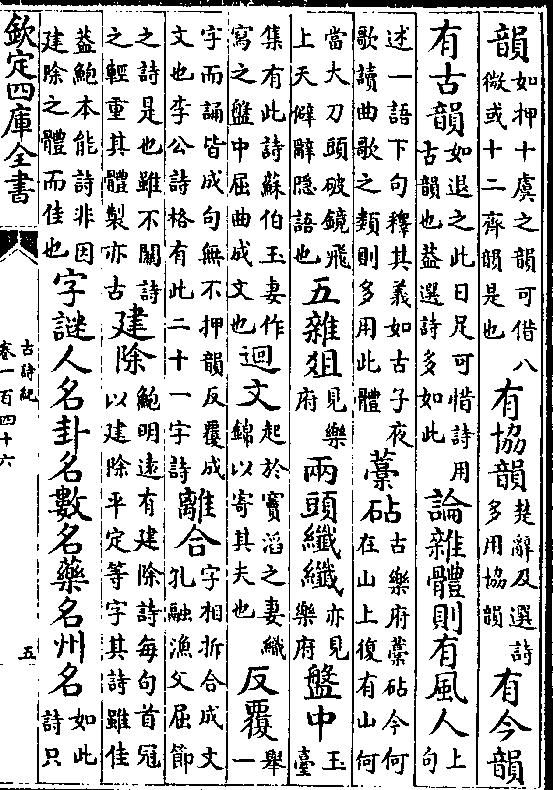 韻如押十虞之韻可借八微或十二齊韻是也有協韻楚辭及選詩多用協韻有今韻
有古韻如退之此日足可惜詩用古韻也葢選詩多如此論雜體則有風人上句
述一語下句釋其義如古子夜歌讀曲歌之類則多用此體藁砧古樂府藁砧今何在山上復有山何
當大刀頭破鏡飛上天僻辭隱語也五雜爼見樂府兩頭纖纖亦見樂府盤中玉臺
集有此詩蘇伯玉妻作寫之盤中屈曲成文也迴文起於竇滔之妻織錦以寄其夫也反覆舉一
字而誦皆成句無不押韻反覆成文也李公詩格有此二十一字詩離合字相拆合成文孔融漁父屈節
之詩是也雖不關詩之輕重其體製亦古建除鮑明逺有建除詩每句首冠以建除平定等字其詩雖佳
葢鮑本能詩非因建除之體而佳也字謎人名卦名數名藥名州名如此詩只
欽定四庫全書
古詩紀
卷一百四十六
五